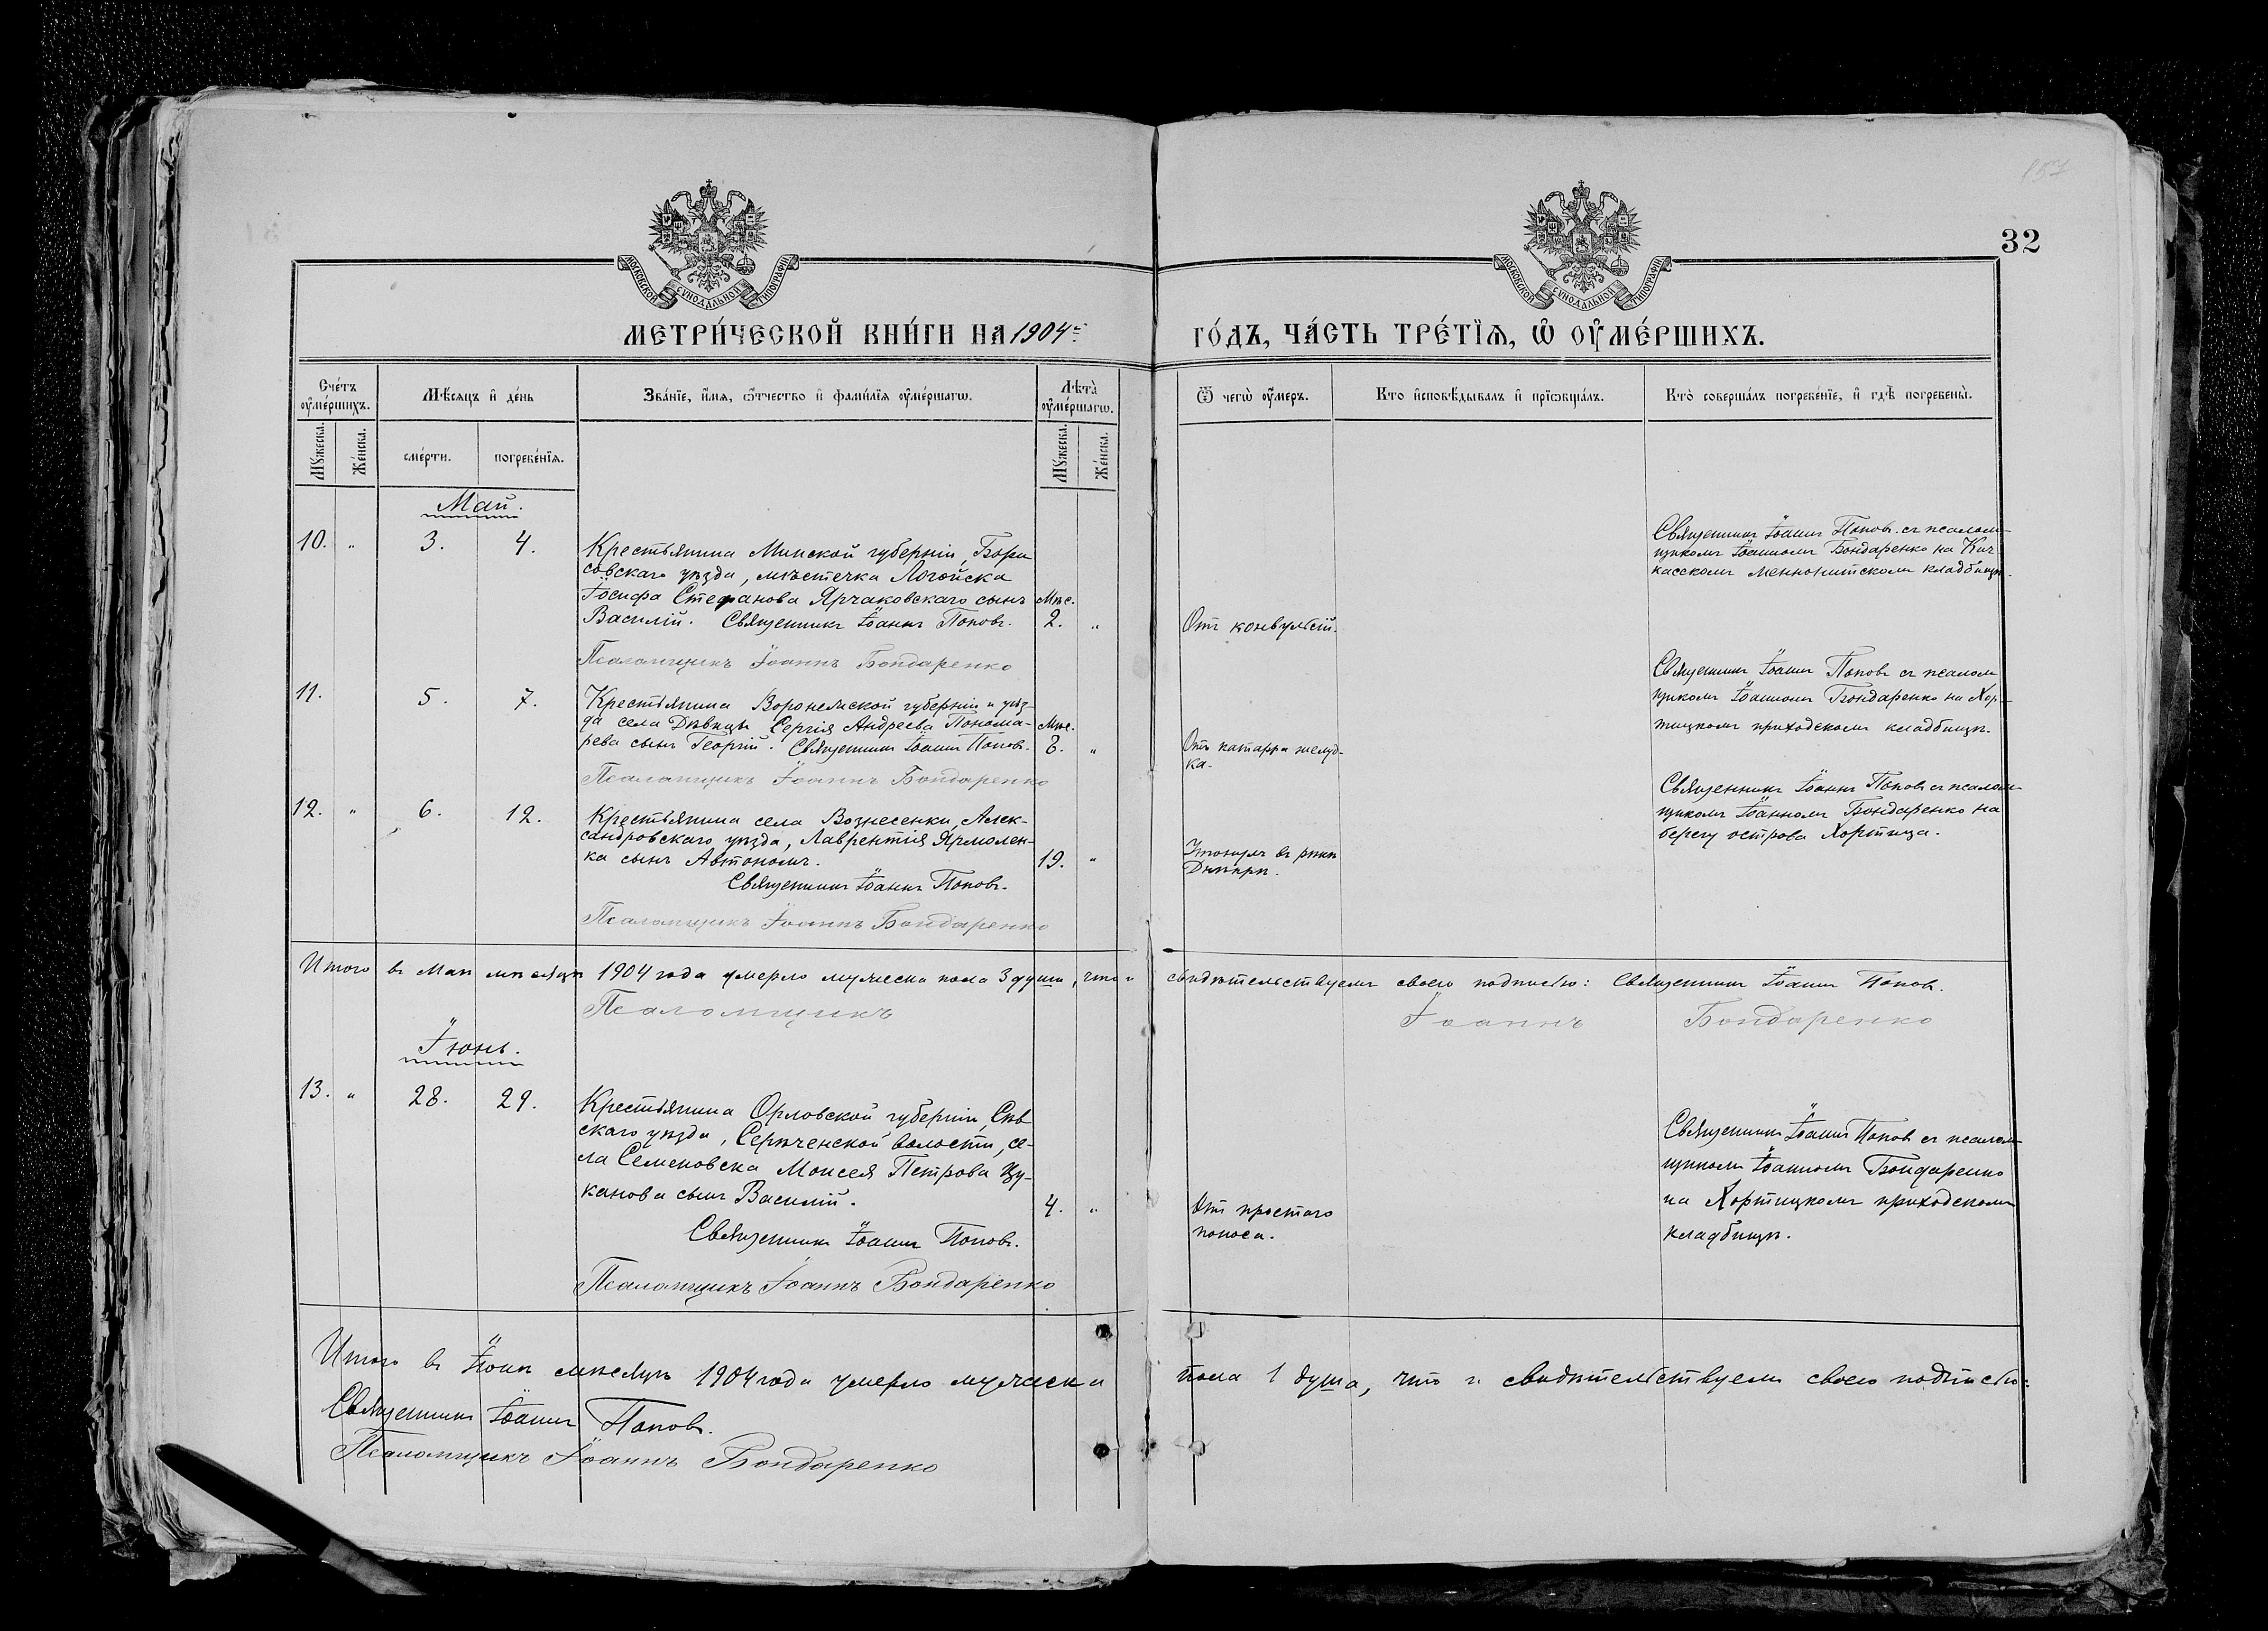 187
32
МОСКОВСКОЙ СѴНОДАЛЬНОЙ ТИПОГРАФІИ
МОСКОВСКОЙ СѴНОДАЛЬНОЙ ТИПОГРАФІИ
МЕТРИ́ЧЕСКОЙ КНИ́ГИ НА 1904й
ГО́ДЪ, ЧА́СТЬ ТРЕ́ТЇѦ, Ѡ҆ ОУ҆МЕ́РШИХЪ.
Сче́тъ оу҆ме́ршихъ.
Мѣ́сяцъ и҆ де́нь
Зва́нїе, и҆́мя, ѻ҆́тчество и҆ фами́лїя оу҆ме́ршагѡ.
Лѣ́та оу҆ме́ршагѡ.
Ѿ чегѡ̀ оу҆́меръ.
Кто̀ и҆сповѣ́дывалъ и҆ прїѡбща́лъ.
Кто̀ соверша́лъ погребе́нїе, и҆ гдѣ̀ погребены̀.
Мꙋ́жеска.
Же́нска.
сме́рти.
погребе́нїя.
Мꙋ́жеска.
Же́нска.
Май.
10. " 3. 4.
Крестьянина Минской губерніи, Бори
совскаго уѣзда, мѣстечка Логойска
Іосифа Стефанова Ярчаковскаго сынъ
Василій. Священникъ Іоаннъ Поповъ.
Псаломщикъ Іоаннъ Бондаренко
Мѣс.
2. "
Отъ конвульсій.
Священникъ Іоаннъ Поповъ съ псалом-
щикомъ Іоанномъ Бондаренко на Кич
касскомъ меннонитскомъ кладбищѣ.
11. 5. 7.
Крестьянина Воронежской губерніи и уѣз-
да села Дѣвицы Сергія Андреева Понома-
рева сынъ Георгій. Священникъ Іоаннъ Поповъ.
Псаломщикъ Іоаннъ Бондаренко
Мѣс.
8. "
Отъ катарра желуд-
ка.
Священникъ Іоаннъ Поповъ съ псалом
щикомъ Іоанномъ Бондаренко на Хор-
тицкомъ приходскомъ кладбищѣ.
12. " 6. 12.
Крестьянина села Вознесенки, Алек-
сандровскаго уѣзда, Лаврентія Ярмолен-
ка сынъ Автономъ.
Священникъ Іоаннъ Поповъ.
Псаломщикъ Іоаннъ Бондаренко
19. "
Утонулъ въ рѣкѣ
Днѣпрѣ.
Священникъ Іоаннъ Поповъ съ псалом-
щикомъ Іоанномъ Бондаренко на
берегу острова Хортица.
Итого въ Маѣ мѣсяцѣ 1904 года умерло мужеска пола 3 души, что и свидѣтельствуемъ своею подписью: Священникъ Іоаннъ Поповъ.
Псаломщикъ Іоаннъ Бондаренко
Іюнь.
13. " 28. 29.
Крестьянина Орловской губерніи, Сѣв
скаго уѣзда, Серѣченской волости, се-
ла Семеновска Моисея Петрова Цу-
канова сынъ Василій.
Священникъ Іоаннъ Поповъ.
Псаломщикъ Іоаннъ Бондаренко
4. "
Отъ простаго
поноса.
Священникъ Іоаннъ Поповъ съ псалом-
щикомъ Іоанномъ Бондаренко
на Хортицкомъ приходскомъ
кладбищѣ.
Итого въ Іюнѣ мѣсяцѣ 1904 года умерло мужеска пола 1 душа, что и свидѣтельствуемъ своею подписью:
Священникъ Іоаннъ Поповъ.
Псаломщикъ Іоаннъ Бондаренко